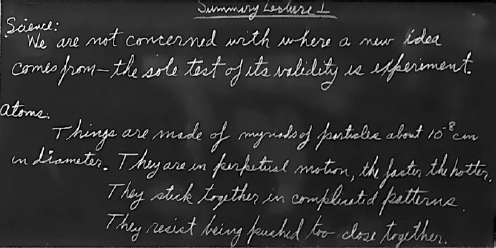 Summary Lecture 1
Science:
We are not concerned with where a new idea
comes from – the sole test of its validity is experiment.
Atoms.
Things are made of myriads of particles about 10⁻⁸ cm
in diameter. They are in perpetual motion, the faster the hotter.
They stick together in complicated patterns
They resist being pushed too close together.